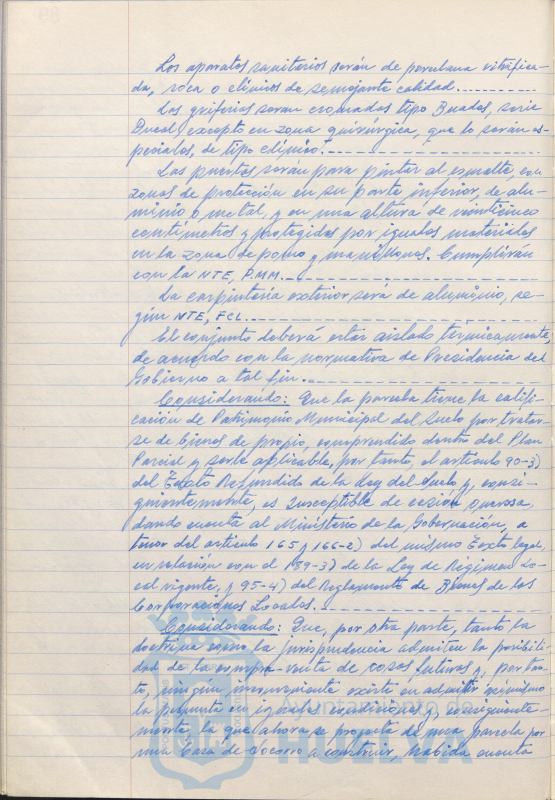 Los aparatos sanitarios serán de porcelana vitrifica-
da, roca o clínicos de semejante calidad.
Las griferías serán cromadas tipo Buades, serie
Ducal, excepto en zona quirúrgica, que lo serán es-
peciales, de tipo clínico.
Las puertas serán para pintar al esmalte, con
zonas de protección en su parte inferior, de alu-
minio o metal, y en una altura de veinticinco
centímetros y protegidas por iguales materiales
en la zona de pomo y manillones. Cumplirán
con la NTE, P.M.M.
La carpintería exterior será de aluminio, se-
gún NTE, FCL.
El conjunto deberá estar aislado térmicamente,
de acuerdo con la normativa de Presidencia del
Gobierno a tal fin.
Considerando: Que la parcela tiene la califi-
cación de Patrimonio Municipal del Suelo por tratar-
se de bienes de propio, comprendido dentro del Plan
Parcial y serle aplicable, por tanto, el artículo 90-3)
del Texto Refundido de la Ley del Suelo y, consi-
guientemente, es susceptible de cesión onerosa,
dando cuenta al Ministerio de la Gobernación, a
tenor del artículo 165 y 166-2) del mismo Texto legal,
en relación con el 189-3) de la Ley de Régimen Lo-
cal vigente, y 95-4) del Reglamento de Bienes de las
Corporaciones Locales.
Considerando: Que, por otra parte, tanto la
doctrina como la jurisprudencia admiten la posibili-
dad de la compra-venta de cosas futuras y, por tan-
to, ningún inconveniente existe en admitir asimismo
la permuta en iguales condiciones y, consiguiente-
mente, la que ahora se proyecta de una parcela por
una Casa de Socorro a construir, habida cuenta
Ayuntamiento de
HUELVA